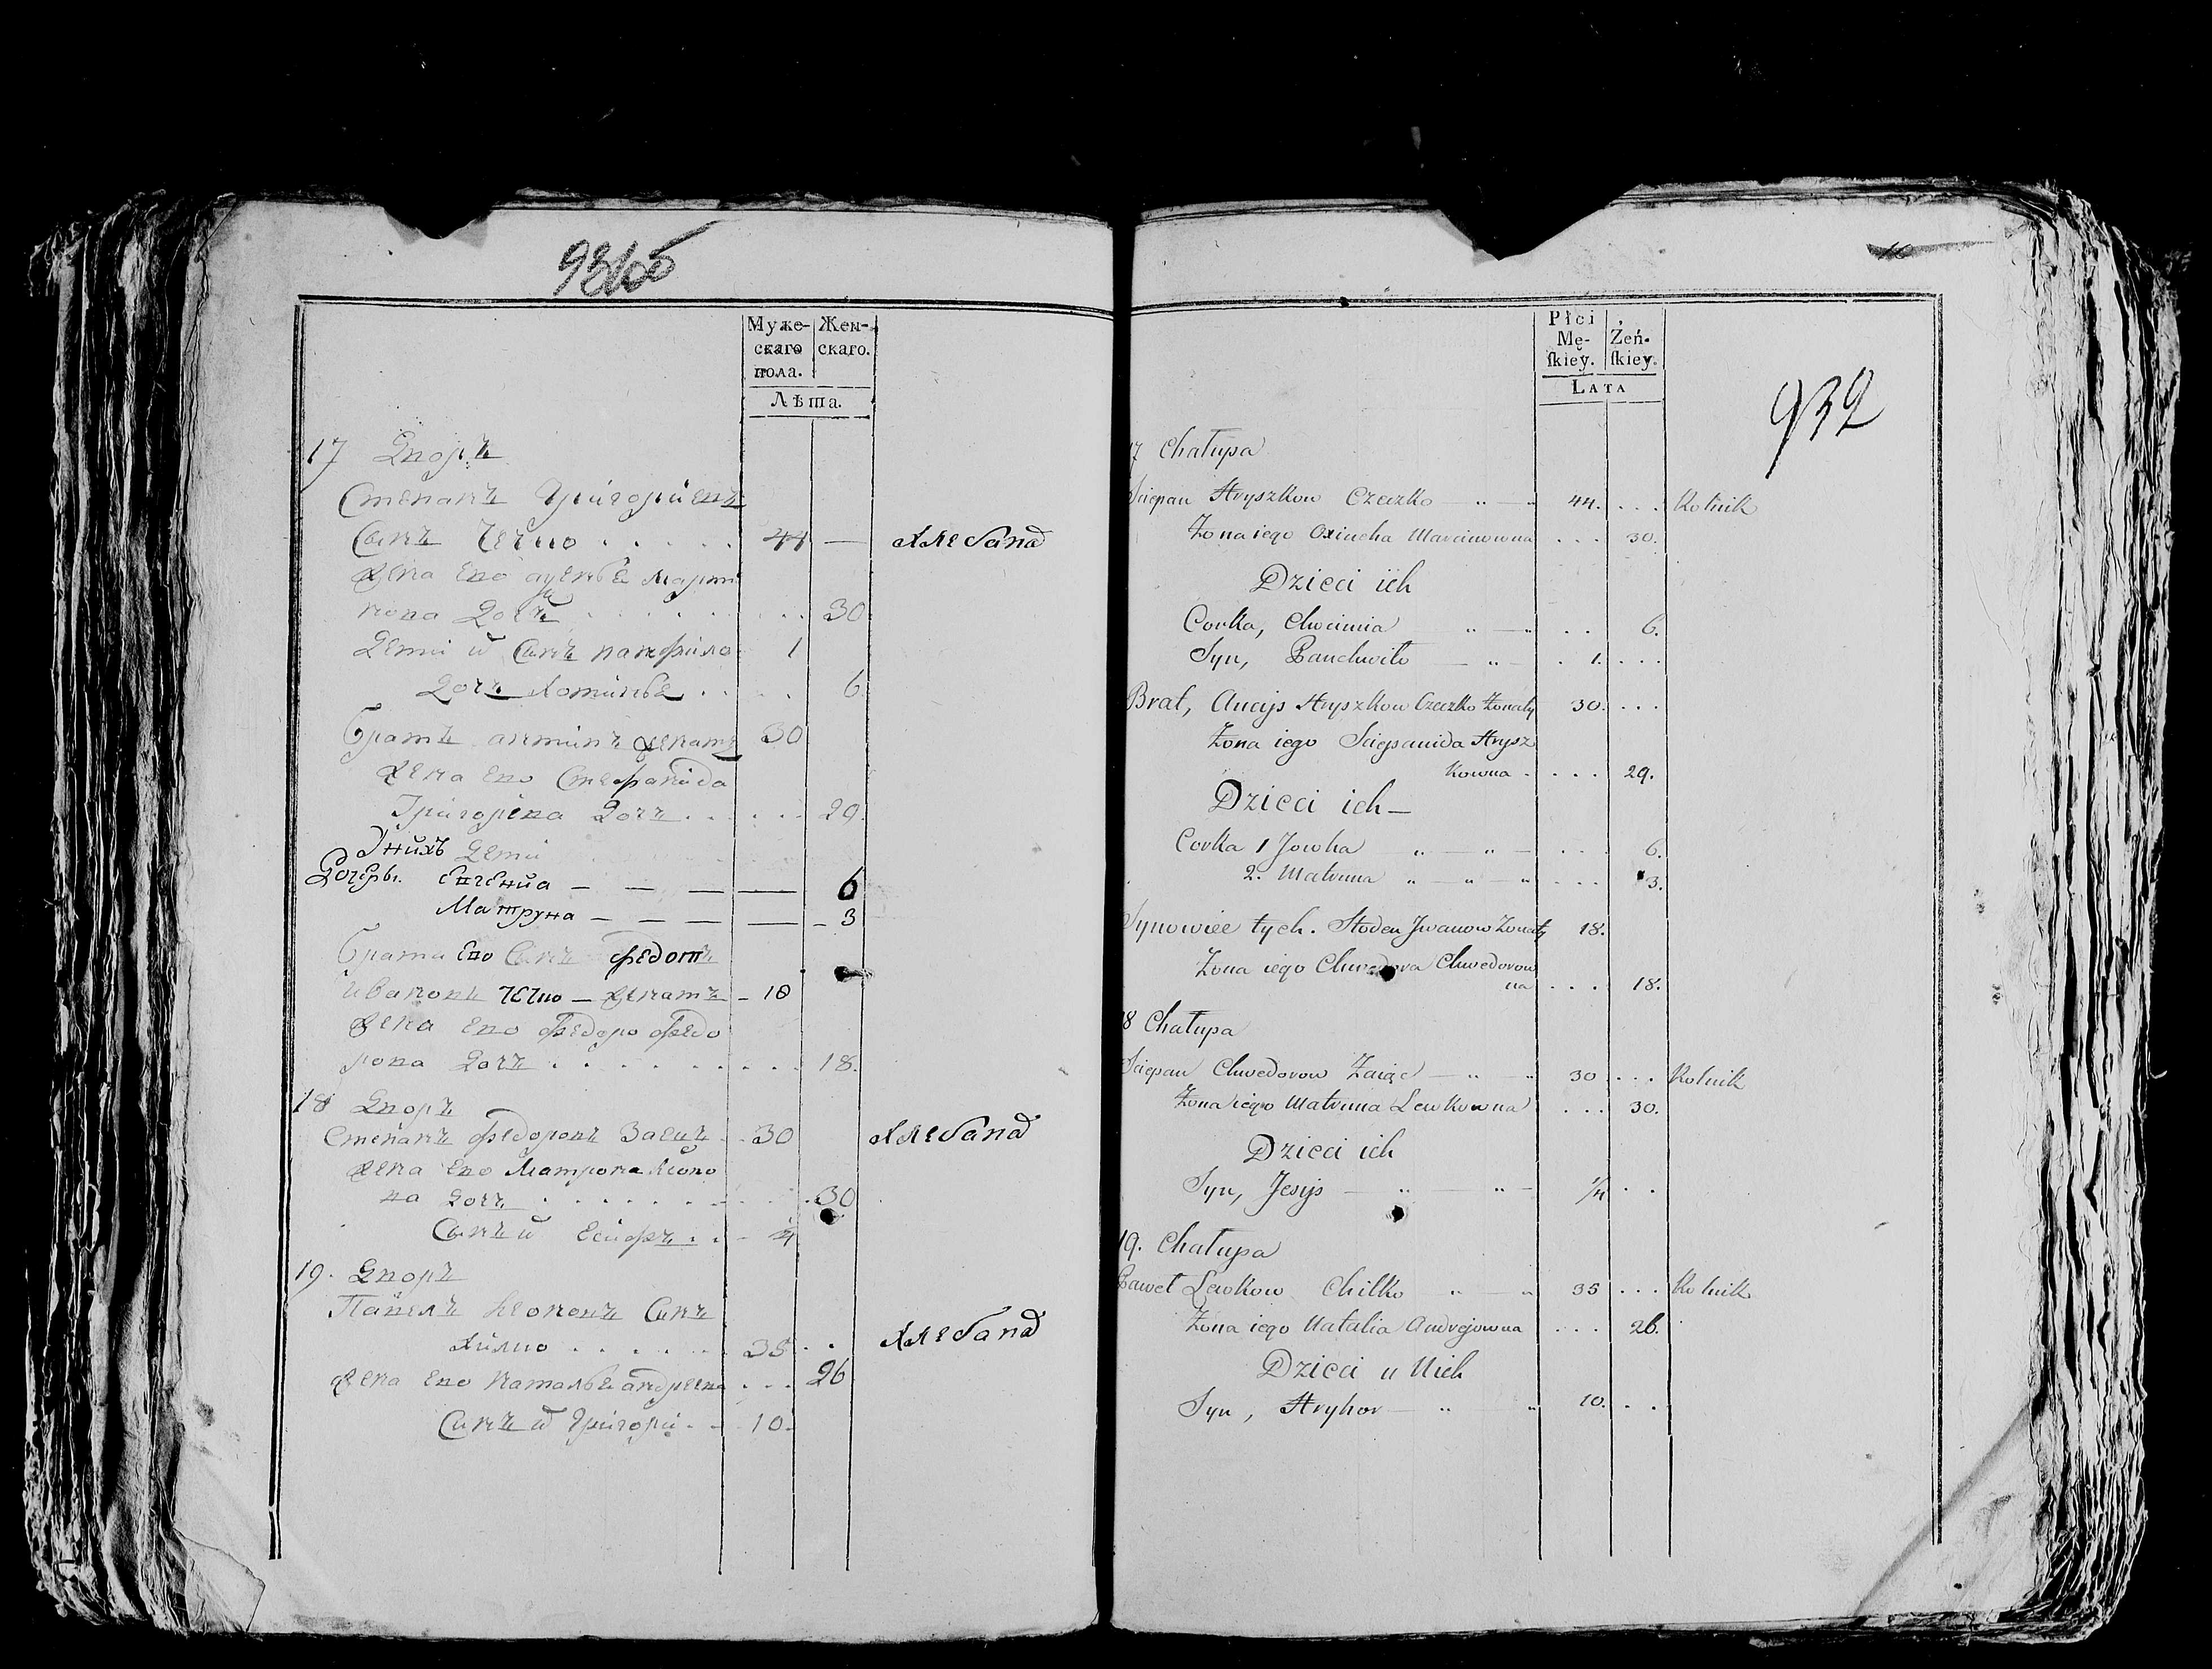 931об
Муже-
скаго
пола.
Жен-
скаго.
Лѣта.
17 Дворъ
Степанъ Григорйевъ
Сынъ Чечко 44 — хлебапа
жена ево аценьѣ марти
нова дочъ 30
Дети и Сынъ панфило 1
дочъ хотинья 6
братъ антипъ женатъ 30
жена ево Стефанида
Григорева дочъ 29
Унихъ дети
Дочеры. Евгения — — — — 6
Матруна — — — — 3
брата ево Сынъ федотъ
иванонъ Чечко — женатъ — 18
жена ево федоро федо
рова дочъ 18.
18 Дворъ
Степанъ федоровъ Заецъ 30 хлебапа
жена ево матрона Леоно
ва дочъ 30
Сынъ и есифъ ¼
19. Дворъ
Павелъ Леоновъ Сынъ
хилко 35 хлебапа
жена ево наталья андреева 26
Сынъ и григори 10.
932
Płci
Mę-
ſkiey.
Żeń-
ſkiey.
LATA
17 Chałupa
Sciepan Hryszkow Czeczko „ — „ 44. . . . Rolnik
Żona iego Oxiucha Marcinowna . . . 30.
Dzieci ich
Corka, Chwimia „ — „ . . 6.
Syn, Panchwiło — „ — . 1. . . .
Brat, Ancips Hryszkow Czeczko Żonaty 30. . . .
Żona iego Sciepanida Hrysz
kowna . . . . 29.
Dzieci ich —
Corka 1 Jowha „ — „ — . . . 6.
2. Matruna „ — „ — „ . . . 3.
Synowiec tych. Choden Jwanow Żonaty 18.
Żona iego Chwedora Chwedorow
na . . . 18.
18 Chałupa
Sciepan Chwedorow Zaiąc — „ — „ 30 . . . Rolnik
Żona iego Matruna Lewkowna . . . 30.
Dzieci ich
Syn, Jesyp — „ — „ — ¼ . .
19. Chałupa
Paweł Lewkow Chilko „ — „ 35 . . . Rolnik
Żona iego Natalia Andrejowna . . . 26.
Dzieci u Nich
Syn, Hryhor — „ — „ 10. . .